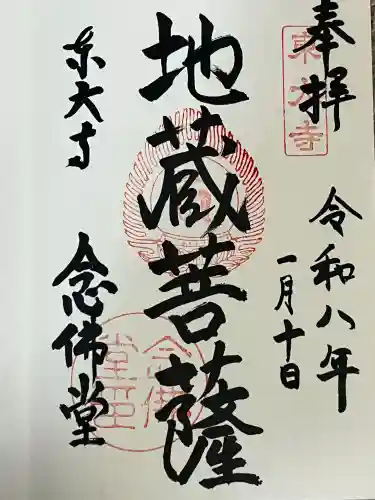 奉拝
東大寺
令和八年
一月十日
地蔵菩薩
東大寺
念佛堂
念佛堂印